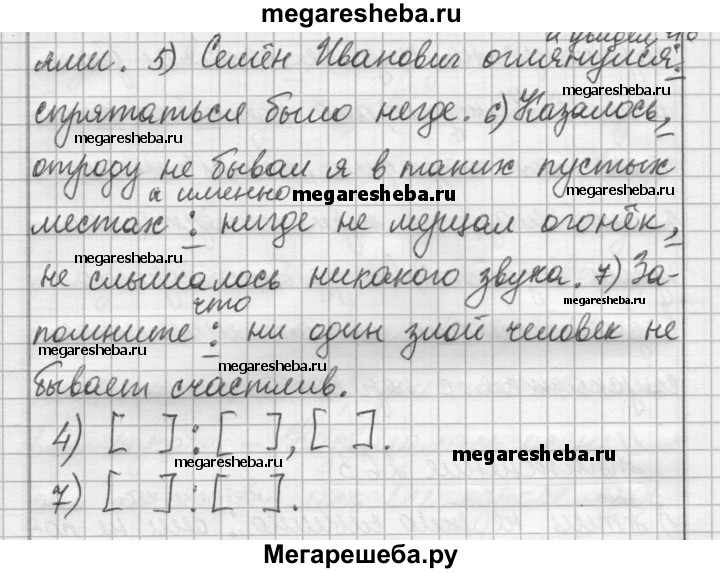 megaresheba.ru
и увидел, что
ями. 5) Семён Иванович оглянулся:
megaresheba.ru
спрятаться было негде. 6) Казалось,
megaresheba.ru
megaresheba.ru
отроду не бывал я в таких пустых
а именно megaresheba.ru megaresheba.ru
местах : нигде не мерцал огонёк,
megaresheba.ru
не слышалось никакого звука. 7) За-
что megaresheba.ru
помните : ни один злой человек не
megaresheba.ru megaresheba.ru
бывает счастлив.
4) [ ] : [ ], [ ].
megaresheba.ru megaresheba.ru
7) [ ] : [ ].
Мегарешеба.ру